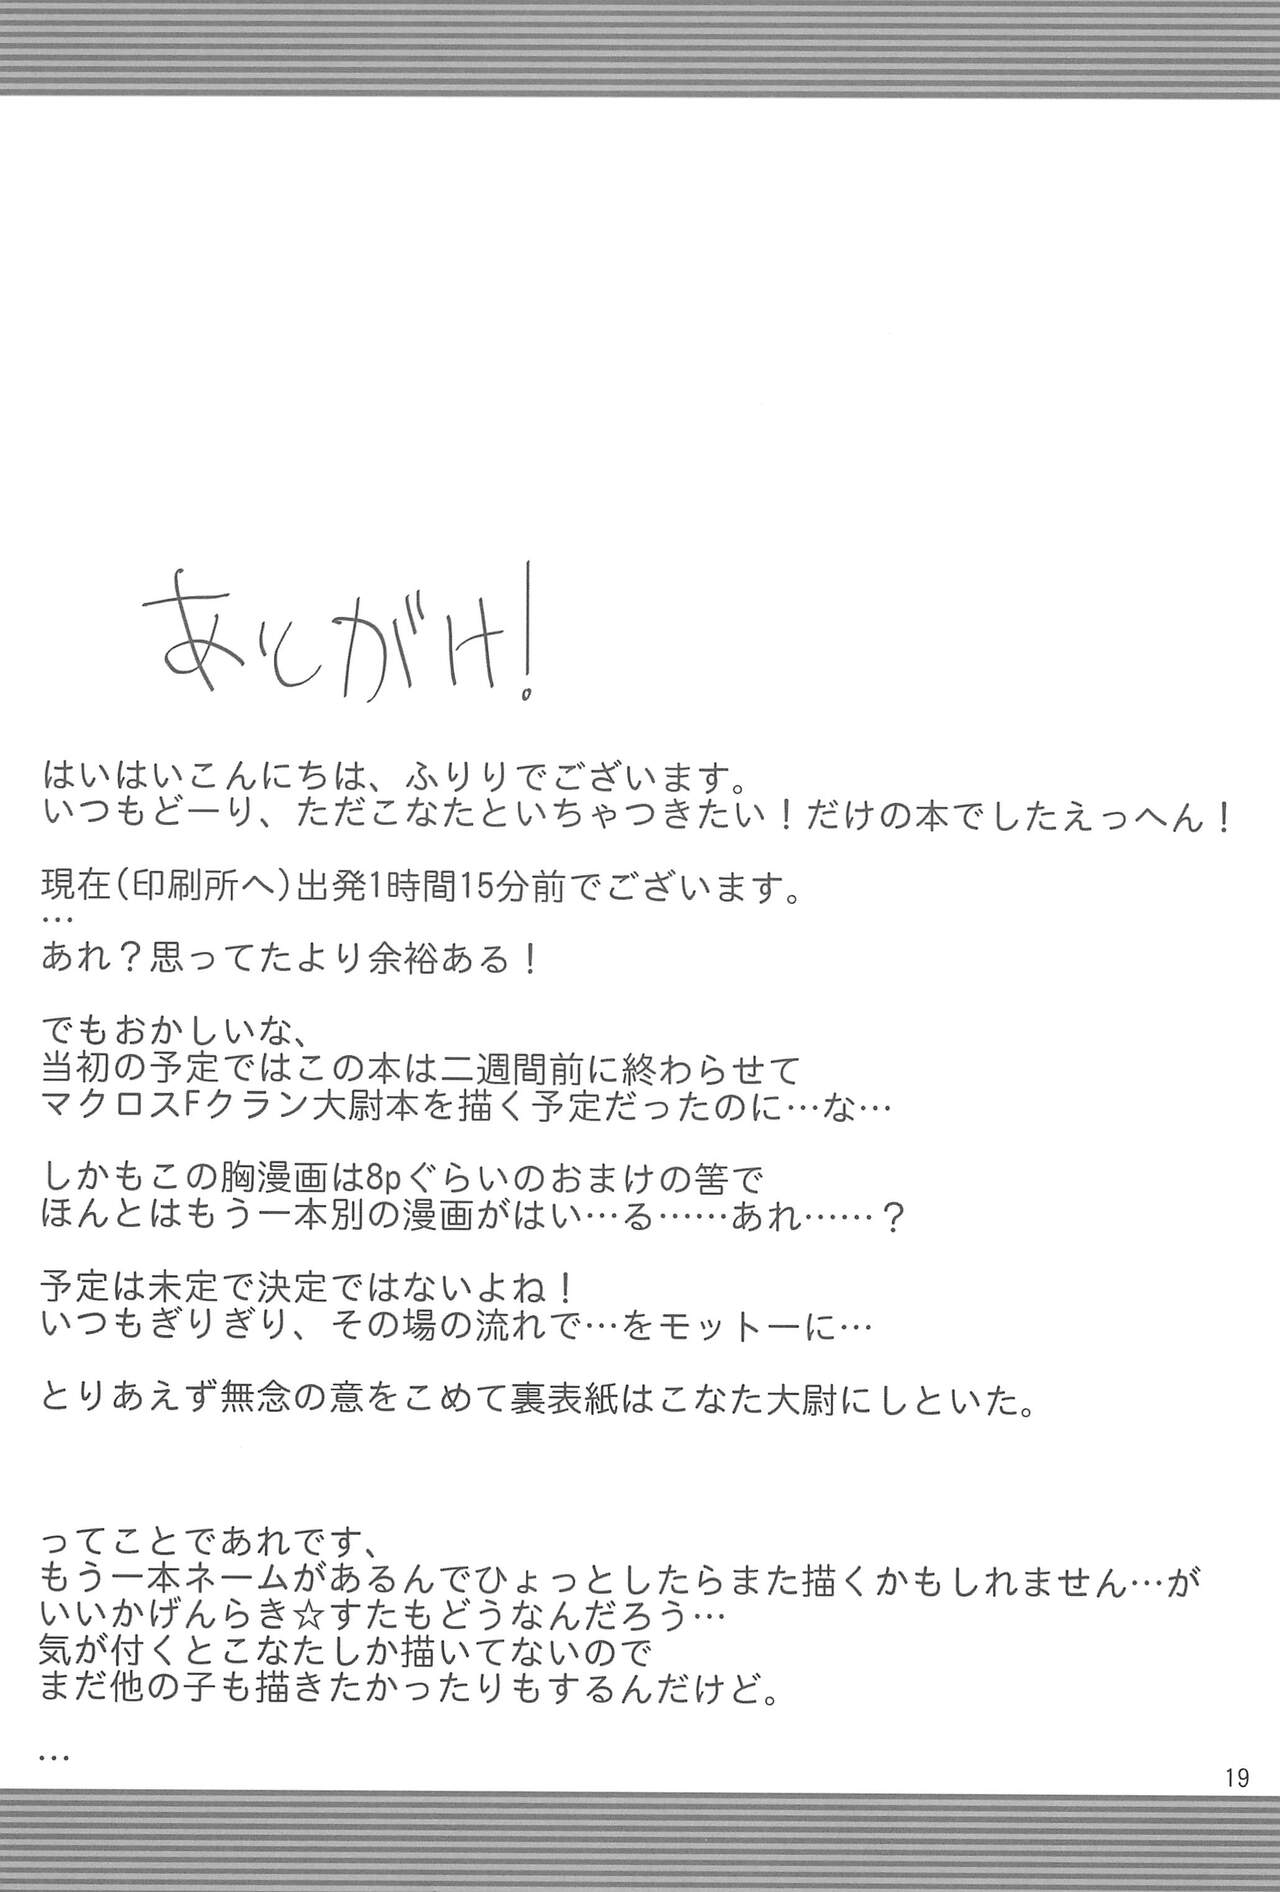 あとがけ!
はいはいこんにちは、ふりりでございます。
いつもどーり、ただこなたといちゃつきたい！だけの本でしたえっへん！
現在(印刷所へ)出発1時間15分前でございます。
…
あれ？思ってたより余裕ある！
でもおかしいな、
当初の予定ではこの本は二週間前に終わらせて
マクロスFクラン大尉本を描く予定だったのに…な…
しかもこの胸漫画は8pぐらいのおまけの筈で
ほんとはもう一本別の漫画がはい…る……あれ……？
予定は未定で決定ではないよね！
いつもぎりぎり、その場の流れで…をモットーに…
とりあえず無念の意をこめて裏表紙はこなた大尉にしといた。
ってことであれです、
もう一本ネームがあるんでひょっとしたらまた描くかもしれません…が
いいかげんらき☆すたもどうなんだろう…
気が付くとこなたしか描いてないので
まだ他の子も描きたかったりもするんだけど。
…
19